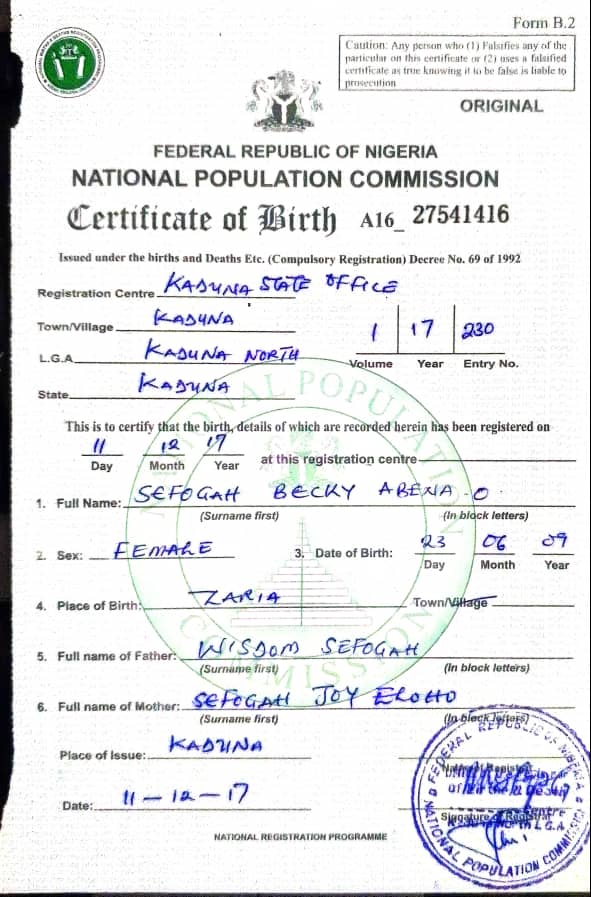 Form B.2
Caution: Any person who (1) Falsifies any of the
particular on this certificate or (2) uses a falsified
certificate as true knowing it to be false is liable to
prosecution
ORIGINAL
FEDERAL REPUBLIC OF NIGERIA
NATIONAL POPULATION COMMISSION
Certificate of Birth A16_ 27541416
Issued under the births and Deaths Etc. (Compulsory Registration) Decree No. 69 of 1992
Registration Centre KADUNA STATE OFFICE
Town/Village KADUNA
1 17 230
L.G.A KADUNA NORTH
Volume Year Entry No.
State KADUNA
This is to certify that the birth, details of which are recorded herein has been registered on
11 12 17 at this registration centre
Day Month Year
1. Full Name: SEFOGAH BECKY ABENA .O.
(Surname first) (In block letters)
2. Sex: FEMALE 3. Date of Birth: 23 06 09
Day Month Year
4. Place of Birth: ZARIA Town/Village
5. Full name of Father: WISDOM SEFOGAH
(Surname first) (In block letters)
6. Full name of Mother: SEFOGAH JOY
(Surname first) (In block letters)
Place of Issue: KADUNA
Date: 11-12-17
Signature of Registrar
FEDERAL REPUBLIC OF NIGERIA
NATIONAL POPULATION COMMISSION
NATIONAL REGISTRATION PROGRAMME
NATIONAL POPULATION COMMISSION